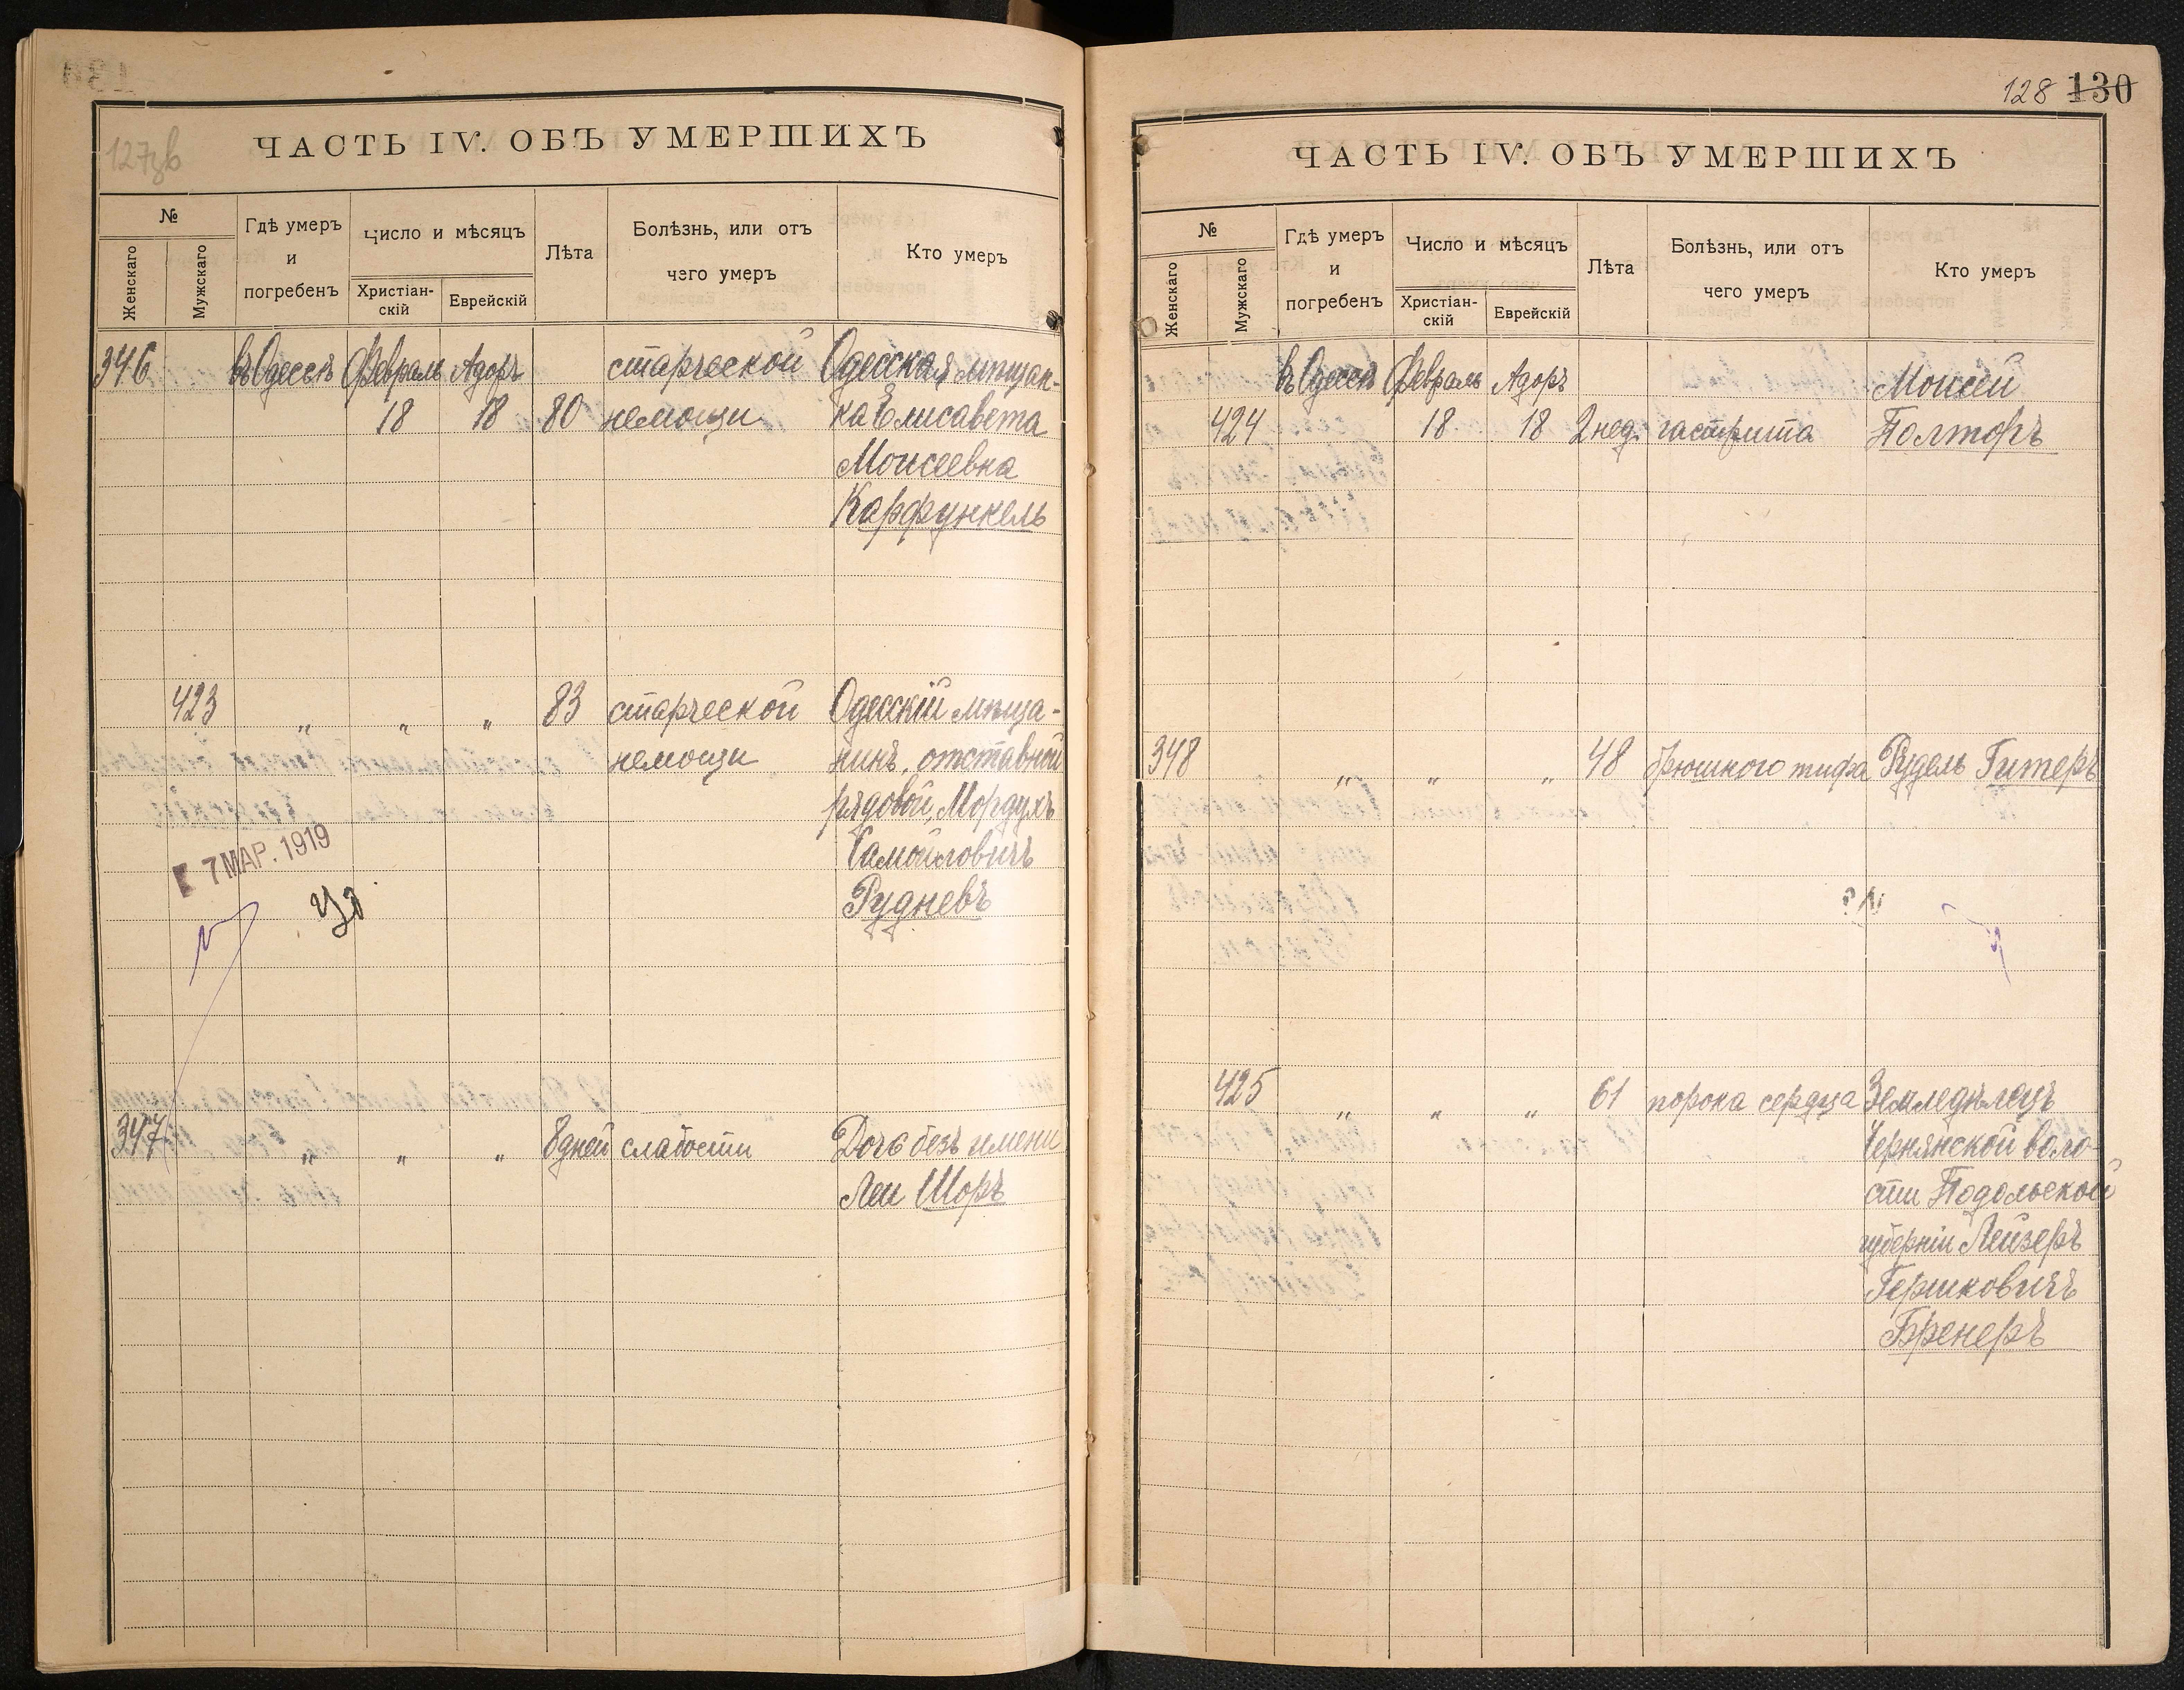 127зв
ЧАСТЬ IV. ОБЪ УМЕРШИХЪ
№
Женскаго
Мужскаго
Гдѣ умеръ
и
погребенъ
Число и мѣсяцъ
Христіан-
скій
Еврейскій
Лѣта
Болѣзнь, или отъ
чего умеръ
Кто умеръ
346 въ Одессѣ Февраль Адоръ старческой Одесская мѣщан-
18 18 80 немощи ка Елисавета
Моисеевна
Карфункель
423 " " " 83 старческой Одесскій мѣща-
немощи нинъ, отставной
рядовой, Мордухъ
Самойловичъ
Рудневъ
7 МАР. 1919
347 " " " 8 дней слабости Дочь безъ имени
Леи Шоръ
128 130
ЧАСТЬ IV. ОБЪ УМЕРШИХЪ.
№
Женскаго
Мужскаго
Гдѣ умеръ
и
погребенъ
Число и мѣсяцъ
Христіан-
скій
Еврейскій
Лѣта
Болѣзнь, или отъ
чего умеръ
Кто умеръ
въ Одессѣ Февраль Адоръ Моисей
424 18 18 2 нед. гастрита Полторъ
348 " " " 48 брюшного тифа Рудель Гитеръ
425 " " " 61 порока сердца Земледѣлецъ
Чернянской воло-
сти Подольской
губерніи Лейзеръ
Гершковичъ
Бренеръ